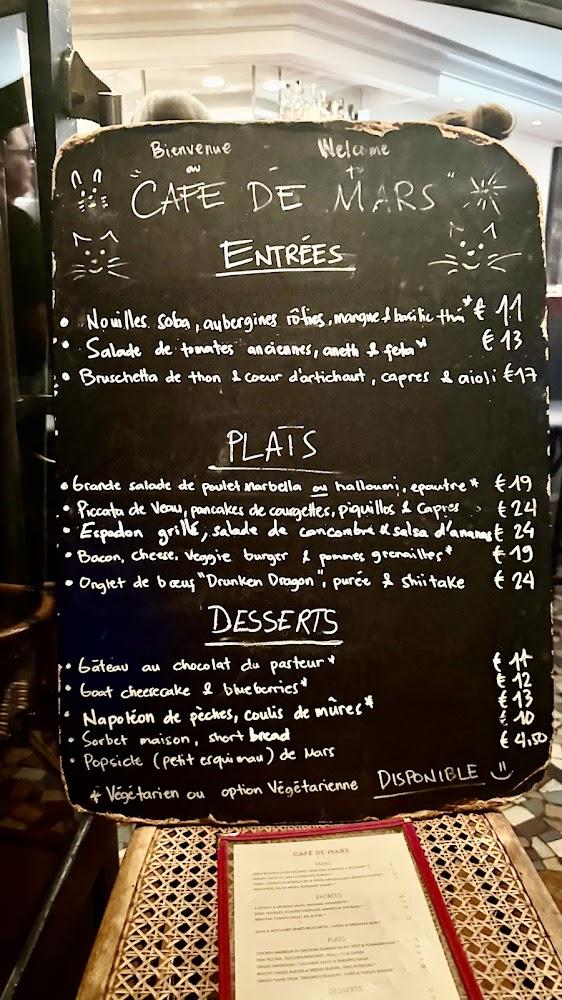 Bienvenue Welcome
au to
"CAFE DE MARS"
ENTRÉES
• Nouilles soba, aubergines rôties, mangue & basilic thaï* € 11
• Salade de tomates anciennes, aneth & feta* € 13
• Bruschetta de thon & coeur d'artichaut, capres & aioli € 17
PLATS
• Grande salade de poulet Marbella ou halloumi, epautre* € 19
• Piccata de Veau, pancakes de courgettes, piquillos & Capres € 24
• Espadon grillé, salade de concombre & salsa d'ananas € 24
• Bacon, cheese, veggie burger & pommes grenailles* € 19
• Onglet de bœuf "Drunken Dragon", purée & shiitake € 24
DESSERTS
• Gâteau au chocolat du pasteur* € 11
• Goat cheesecake & blueberries* € 12
• Napoléon de pêches, coulis de mûres* € 13
• Sorbet maison, short bread € 10
• Popsicle (petit esquimau) de Mars € 4,50
* Végétarien ou option Végétarienne DISPONIBLE
CAFÉ DE MARS
TAPAS
ENTRÉES
PLATS
DESSERTS